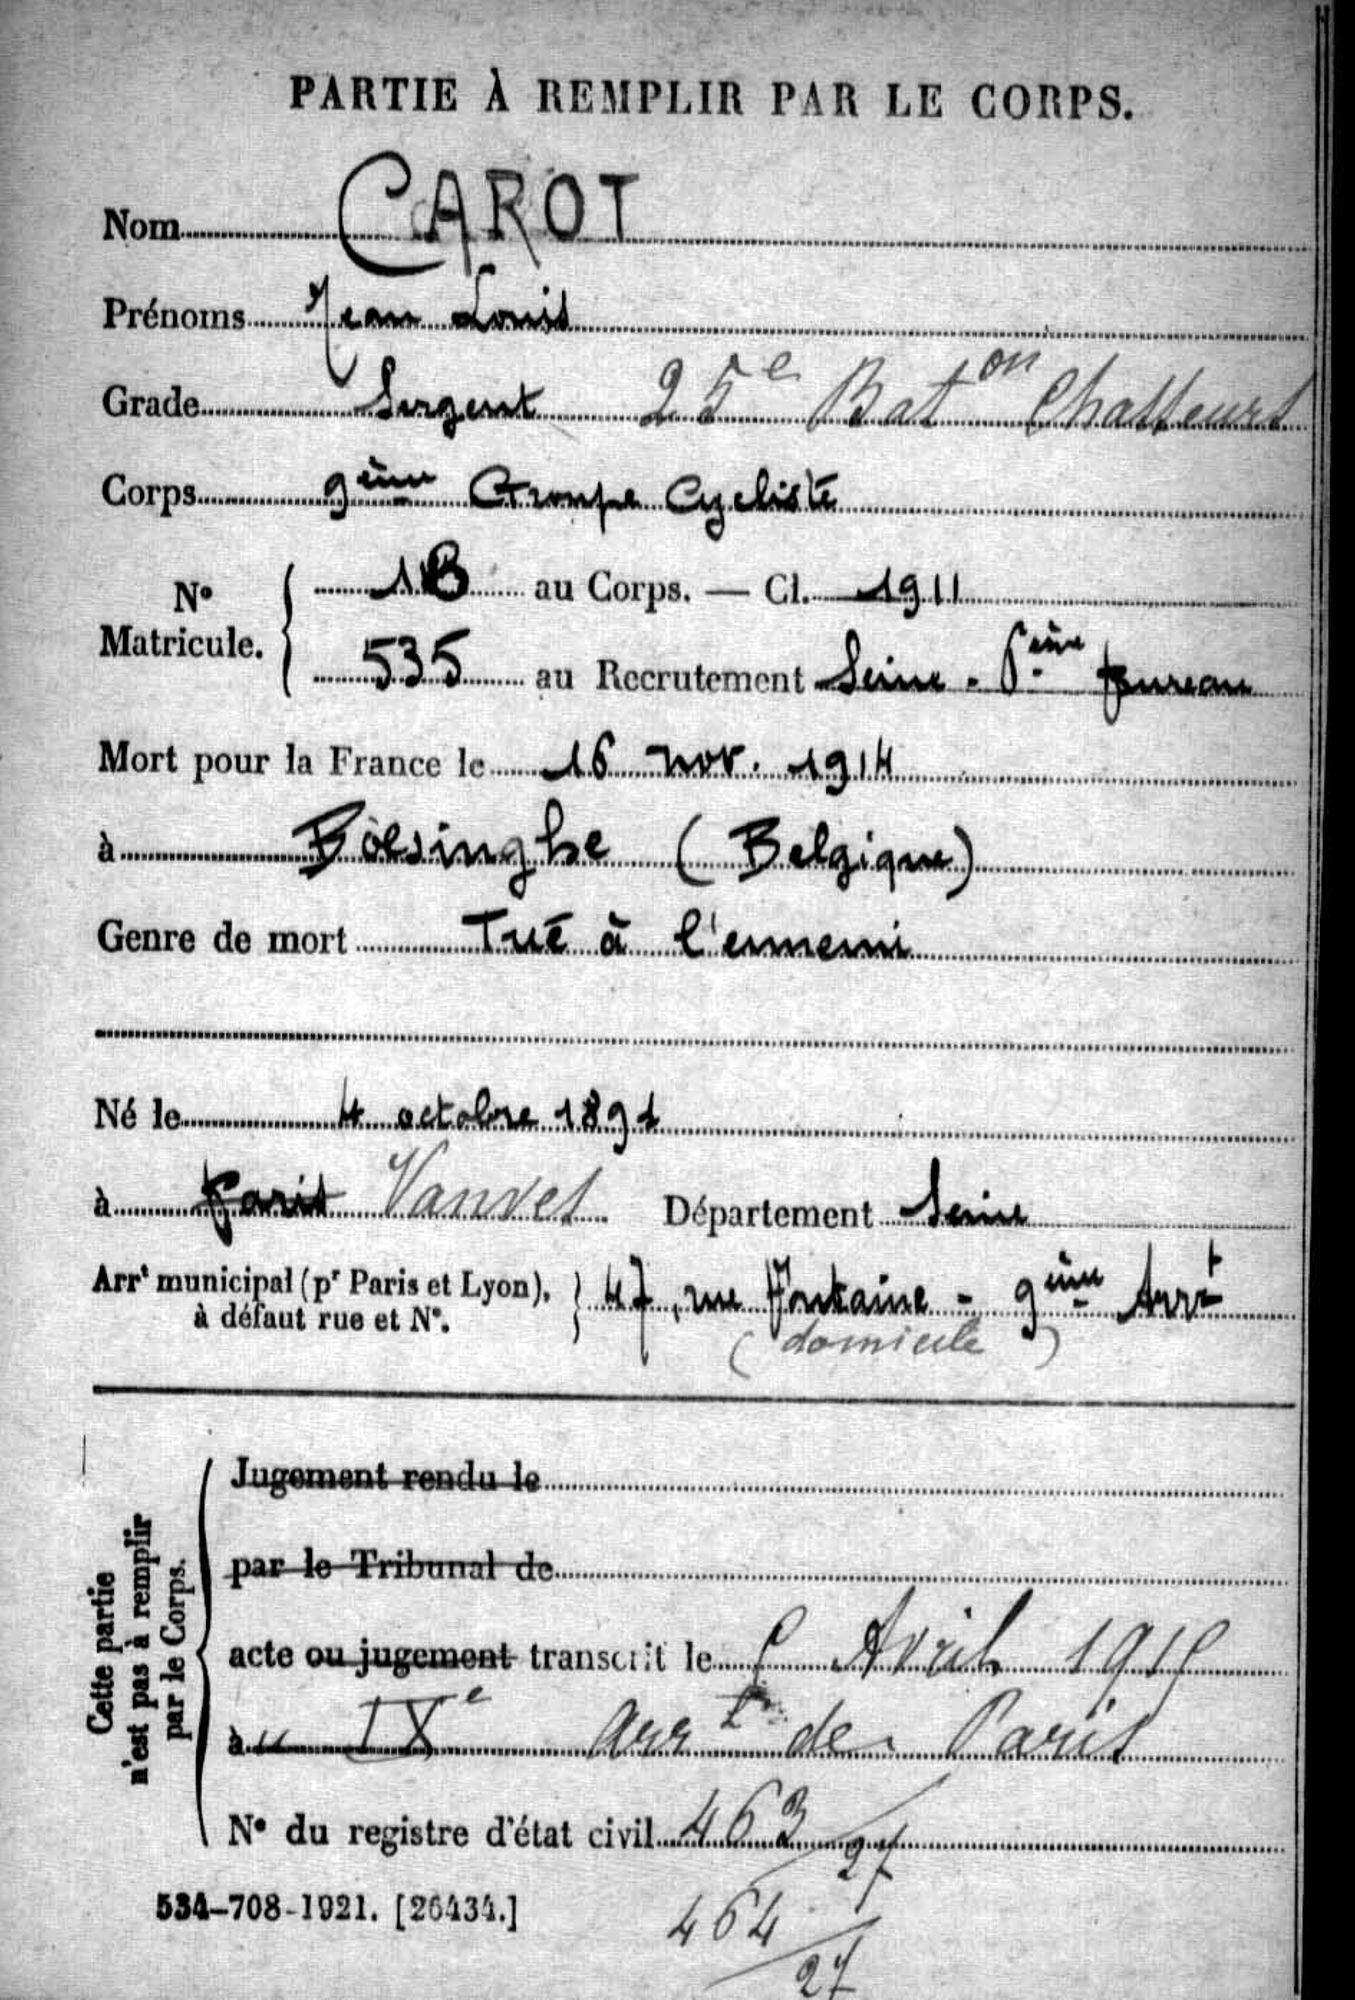 PARTIE À REMPLIR PAR LE CORPS.
Nom CAROT
Prénoms Jean Louis
Grade Sergent 25e Baton Chasseurs
Corps 9ème Groupe Cycliste
No Matricule. 18 au Corps. — Cl. 1911
535 au Recrutement Seine - bureau
Mort pour la France le 16 nov. 1914
à Boesinghe (Belgique)
Genre de mort Tué à l'ennemi
Né le 4 octobre 1891
à Paris Vanves Département Seine
Arrt municipal (pr Paris et Lyon), à défaut rue et No. 47, rue Fontaine - 9ème Arrt
(domicile)
Cette partie n'est pas à remplir par le Corps.
Jugement rendu le
par le Tribunal de
acte ou jugement transcrit le Avril
au IXe Arrt de Paris
No du registre d'état civil 463/27
534-708-1921. [26434.]
464/27